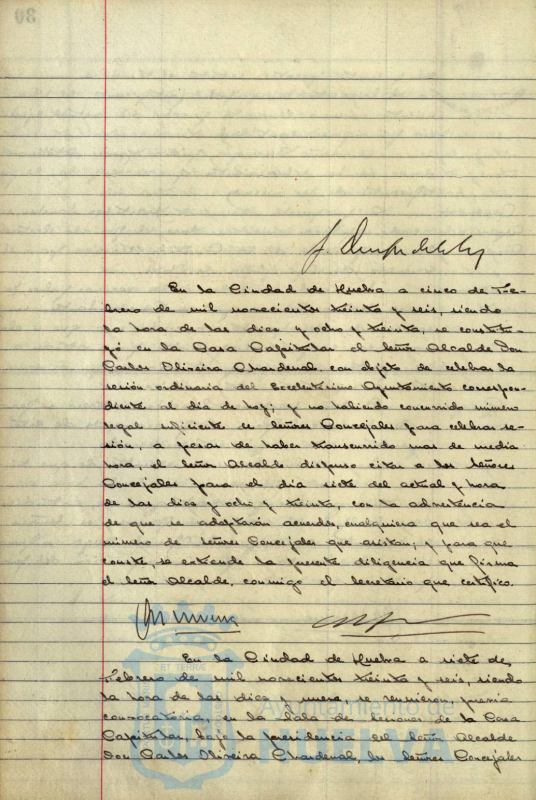 En la Ciudad de Huelva a cinco de Fe-
brero de mil novecientos treinta y seis, siendo
la hora de las diez y ocho y treinta, se constitu-
yó en la Casa Capitular el Señor Alcalde Don
Carlos Oliveira Chardenal con objeto de celebrar la
sesión ordinaria del Excelentísimo Ayuntamiento correspon-
diente al dia de hoy; y no habiendo concurrido número
legal suficiente de Señores Concejales para celebrar se-
sión, a pesar de haber transcurrido mas de media
hora, el Señor Alcalde dispuso citar a los Señores
Concejales para el dia siete del actual y hora
de las diez y ocho y treinta, con la advertencia
de que se adoptarán acuerdos, cualquiera que sea el
número de Señores Concejales que asistan; y para que
conste, se extiende la presente diligencia que firma
el Señor Alcalde, conmigo el Secretario que certifico.
En la Ciudad de Huelva a siete de
Febrero de mil novecientos treinta y seis, siendo
la hora de las diez y nueve, se reunieron previa
convocatoria, en la Sala de Sesiones de la Casa
Capitular, bajo la presidencia del Señor Alcalde
Don Carlos Oliveira Chardenal, los Señores Concejales
Ayuntamiento de
HUELVA